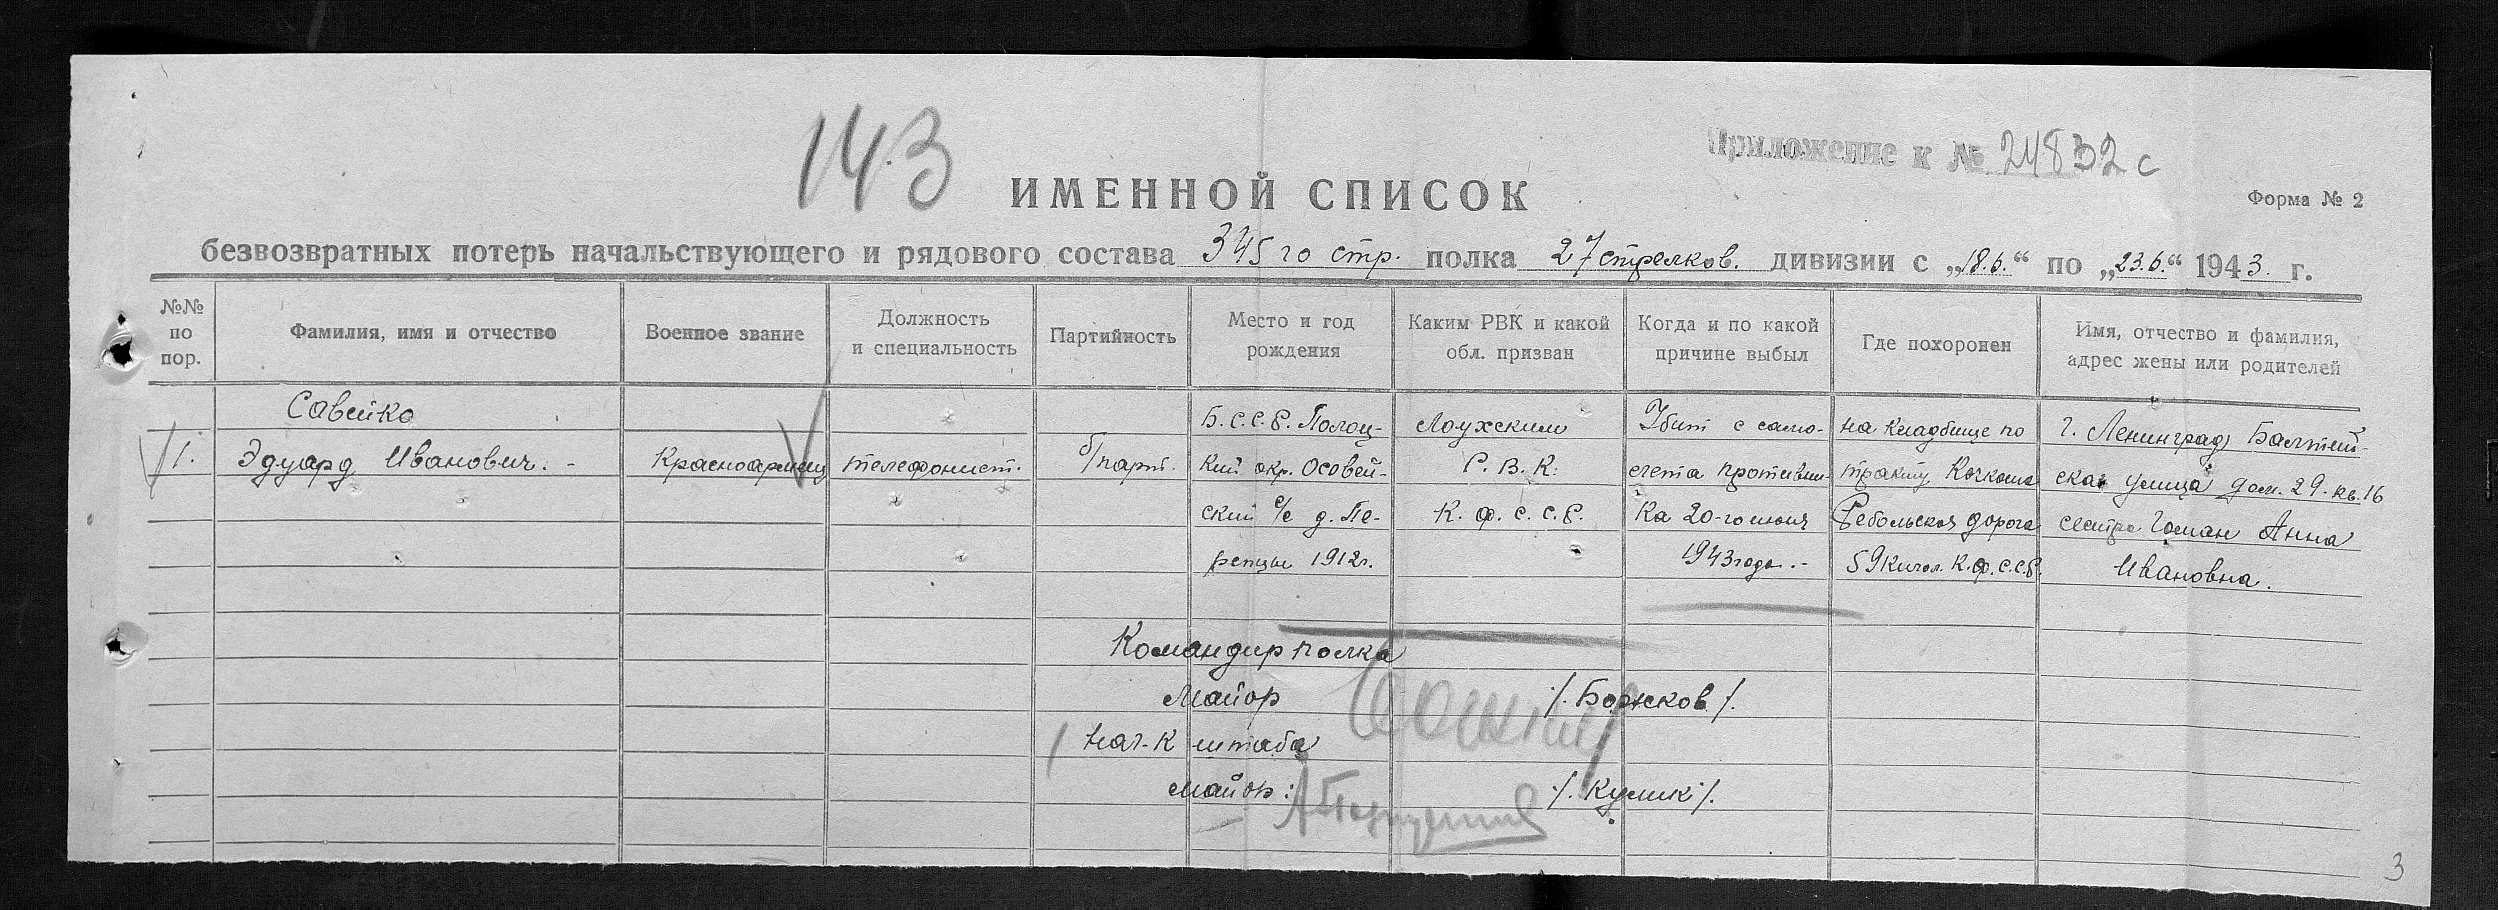 143
Приложение к № 24832 с
ИМЕННОЙ СПИСОК
Форма № 2
безвозвратных потерь начальствующего и рядового состава 345 го стр. полка 27 стрелков. дивизии с „18.6.“ по „23.6.“ 1943. г.
№№ по пор.
Фамилия, имя и отчество
Военное звание
Должность и специальность
Партийность
Место и год рождения
Каким РВК и какой обл. призван
Когда и по какой причине выбыл
Где похоронен
Имя, отчество и фамилия, адрес жены или родителей
1.
Савейко
Эдуард Иванович. -
Красноармеец
телефонист.
б/парт.
Б.С.С.Р. Полоц-
кий окр. Осовей-
ский с/с д. Пе-
репцы 1912г.
Лоухским
Р. В. К.
К. Ф. С. С. Р.
Убит с само-
лета противни-
ка 20-го июня
1943 года. -
на кладбище по
тракту Кочкома
Ребольская дорога
59 килом. К.Ф.С.С.Р.
г. Ленинград Балтий-
ская улица дом. 29. кв. 16
сестра Гоман Анна
Ивановна.
Командир полка
Майор /. Боржков /.
нач-к штаба
майор: /. Кулик /.
3